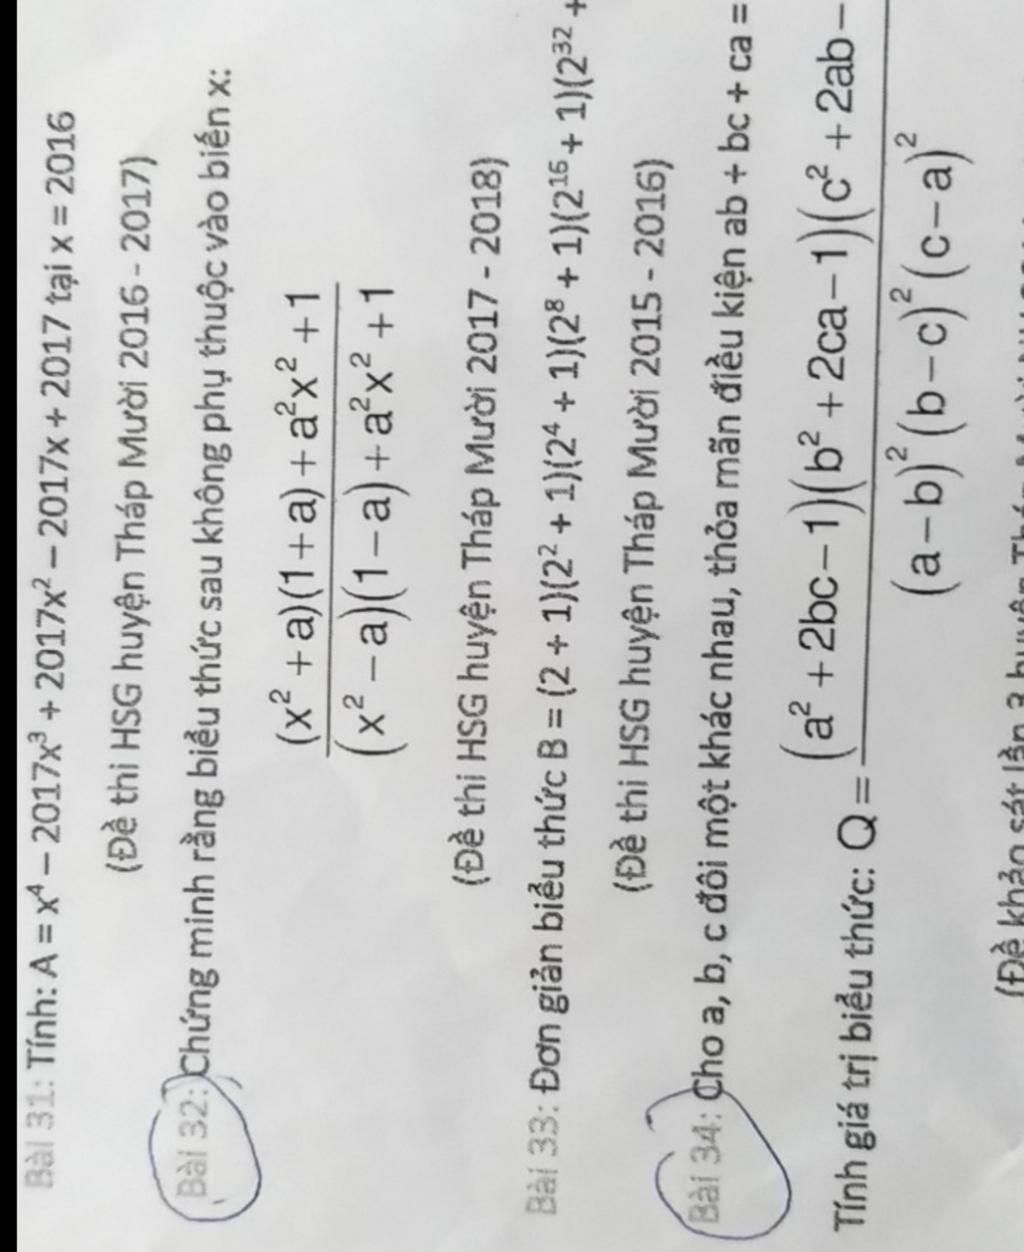 Bài 31: Tính: A = x⁴ – 2017x³ + 2017x² – 2017x + 2017 tại x = 2016
(Đề thi HSG huyện Tháp Mười 2016 - 2017)
Bài 32: Chứng minh rằng biểu thức sau không phụ thuộc vào biến x:
(x² + a)(1 + a) + a²x² + 1
(x² – a)(1 – a) + a²x² + 1
(Đề thi HSG huyện Tháp Mười 2017 - 2018)
Bài 33: Đơn giản biểu thức B = (2 + 1)(2² + 1)(2⁴ + 1)(2⁸ + 1)(2¹⁶ + 1)(2³² +
(Đề thi HSG huyện Tháp Mười 2015 - 2016)
Bài 34: Cho a, b, c đôi một khác nhau, thỏa mãn điều kiện ab + bc + ca =
Tính giá trị biểu thức: Q = (a² + 2bc – 1)(b² + 2ca – 1)(c² + 2ab –
(a – b)² (b – c)² (c – a)²
(Đề khảo sát lần 3 huyện